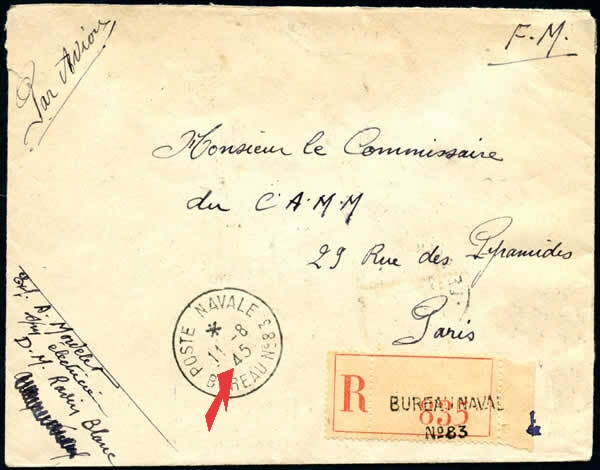 Par Avion
F.M.
Monsieur le Commissaire
du C A.M.M
29 Rue des Pyramides
Paris
POSTE NAVALE
*
11-8
45
BUREAU N° 83
Exp. A.
électricien
D.M. Ravin Blanc
R
BUREAU NAVAL
835
N° 83